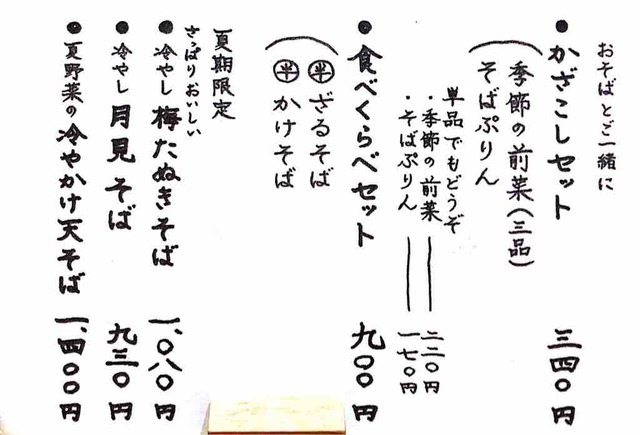 おそばとご一緒に
●かざこしセット 三四〇円
季節の前菜(三品)
そばぷりん
単品でもどうぞ
・季節の前菜 二二〇円
・そばぷりん 一七〇円
●食べくらべセット 九〇〇円
半ざるそば
半かけそば
夏期限定
さっぱりおいしい
●冷やし梅たぬきそば 一、〇八〇円
●冷やし月見そば 九三〇円
●夏野菜の冷やかけ天そば 一、四〇〇円